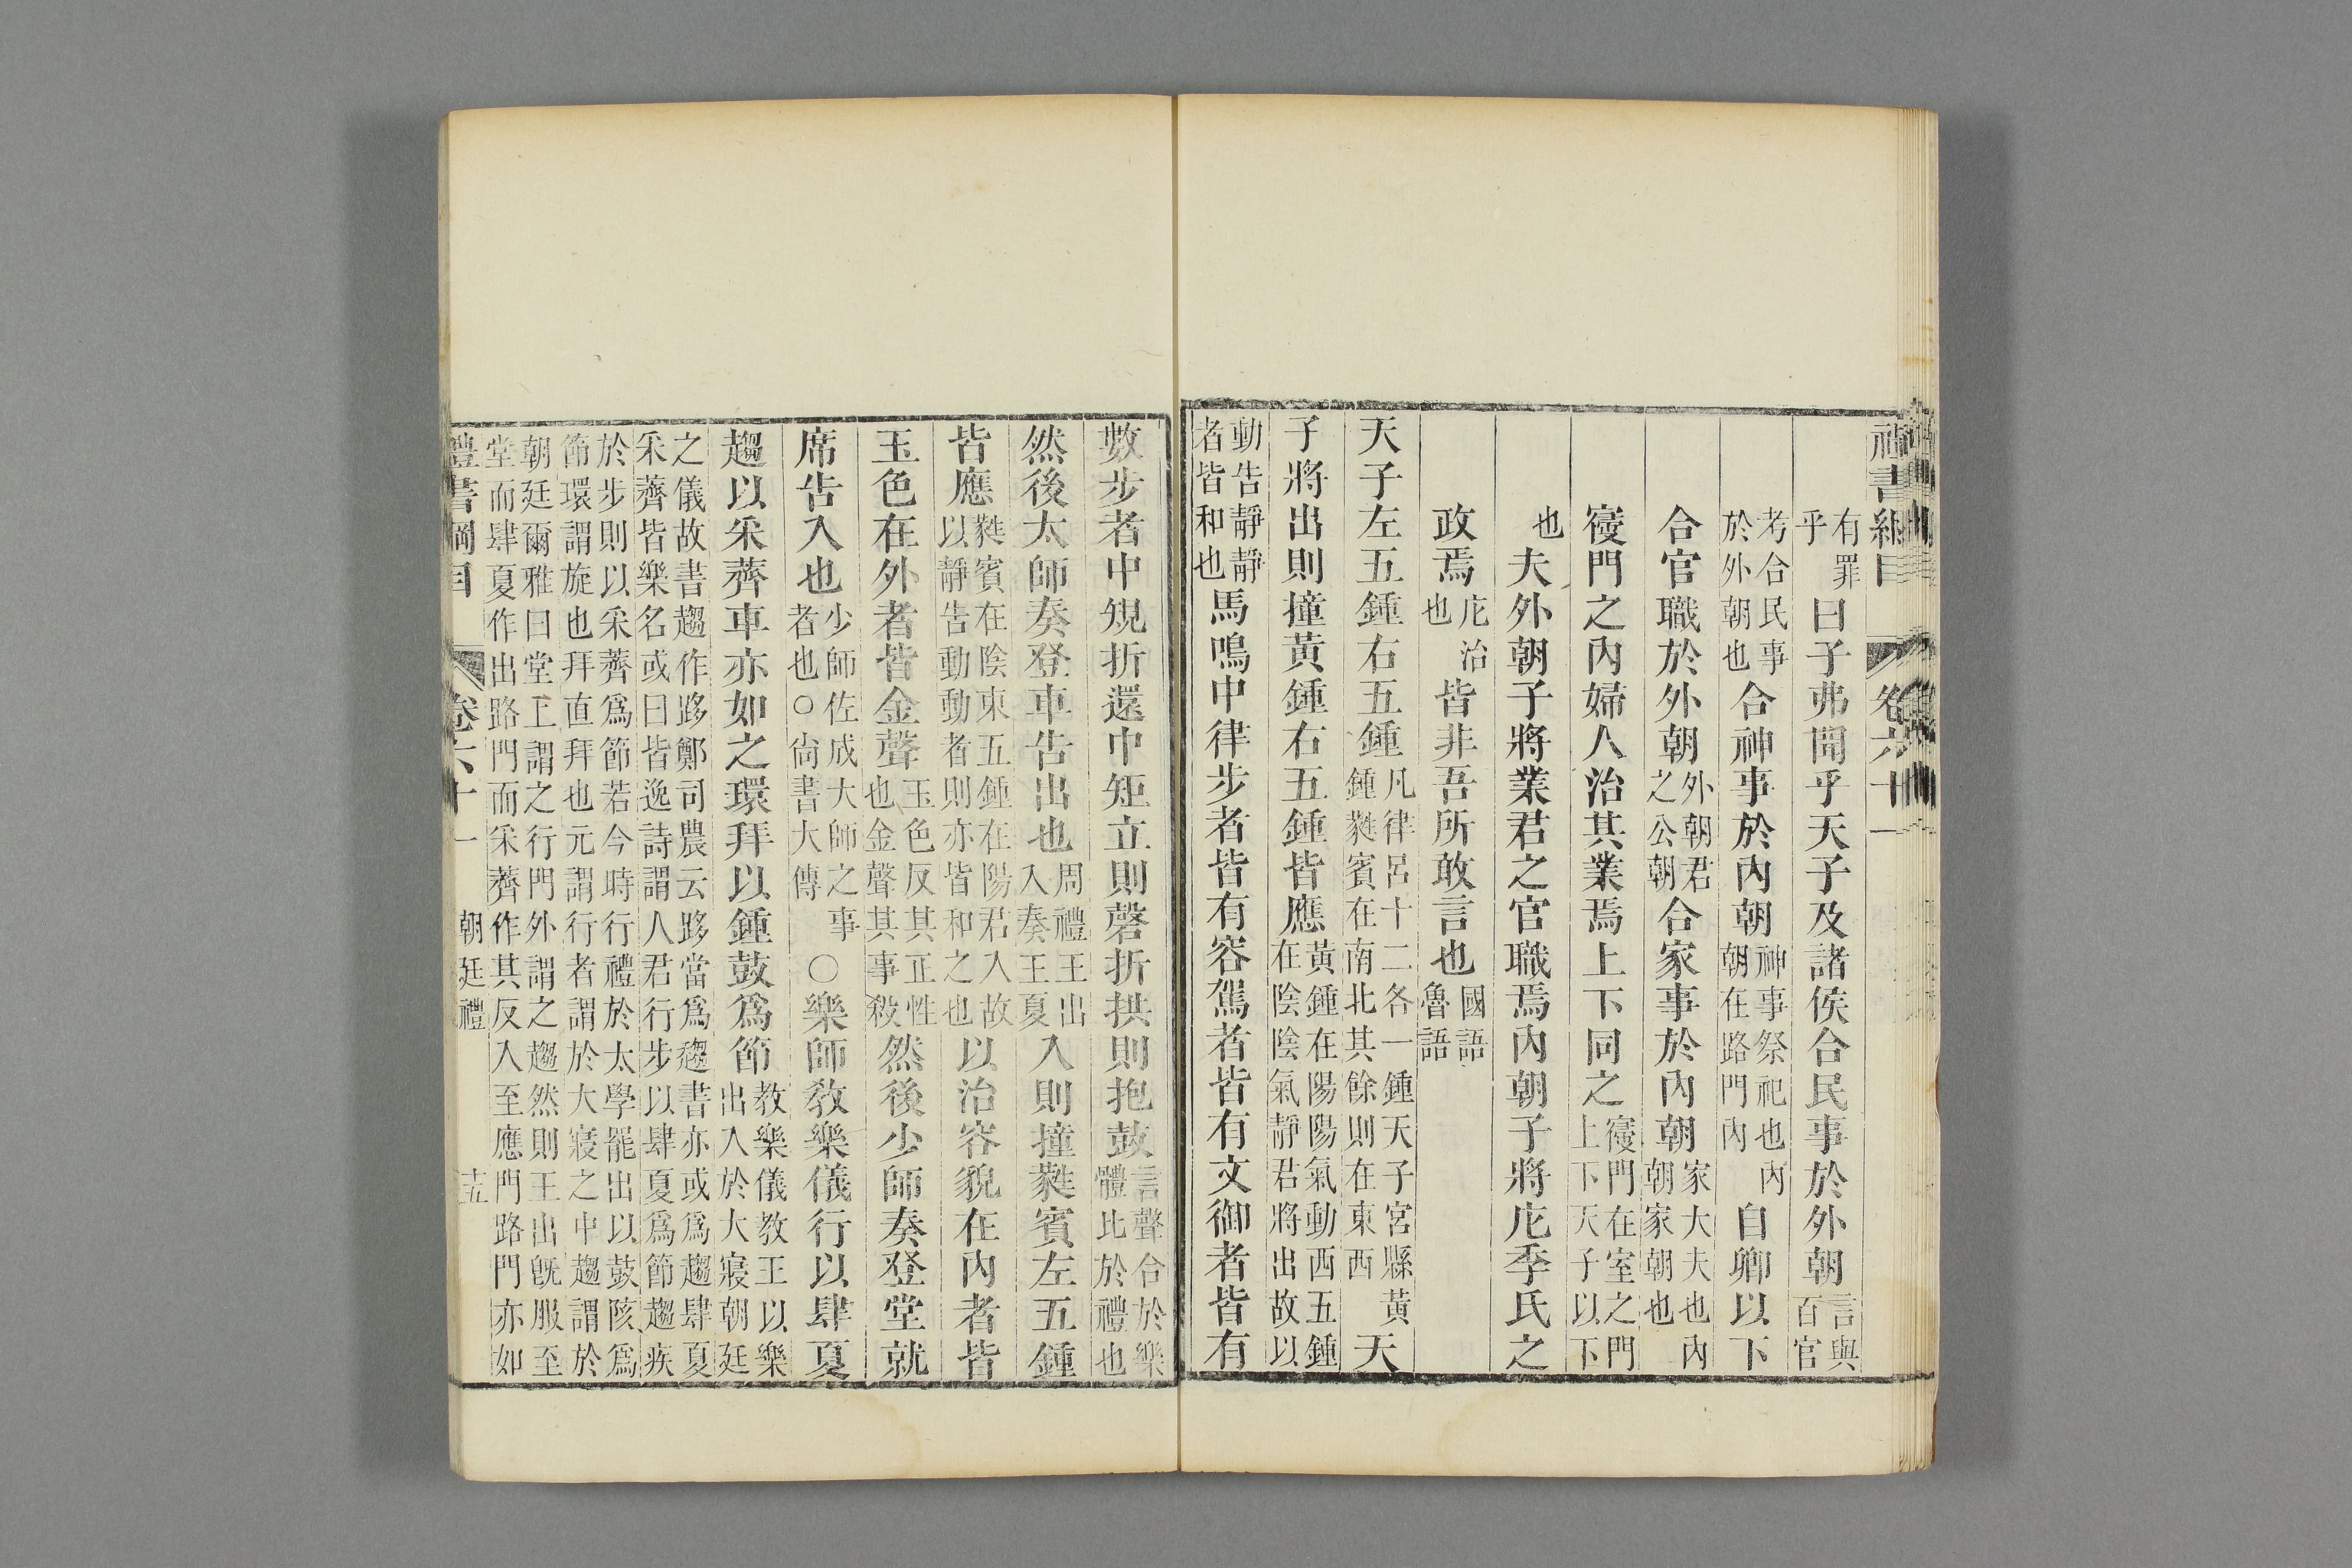 禮書綱目　卷六十一
有罪乎曰子弗聞乎天子及諸侯合民事於外朝言與百官
考合民事於外朝也合神事於內朝神事祭祀也內朝在路門內自卿以下
合官職於外朝外朝君之公朝合家事於內朝家大夫也內朝家朝也
寑門之內婦人治其業焉上下同之寑門在室之門上下天子以下
也夫外朝子將業君之官職焉內朝子將庀季氏之
政焉庀治也皆非吾所敢言也國語魯語
天子左五鍾右五鍾凡律呂十二各一鍾天子宮縣黃鍾蕤賓在南北其餘則在東西天
子將出則撞黃鍾右五鍾皆應黃鍾在陽陽氣動西五鍾在陰陰氣靜君將出故以
動告靜靜者皆和也馬鳴中律步者皆有容駕者皆有文御者皆有
數步者中規折還中矩立則磬折拱則抱鼓言聲合於樂體比於禮也
然後太師奏登車告出也周禮王出入奏王夏入則撞蕤賓左五鍾
皆應蕤賓在陰東五鍾在陽君入故以靜告動動者則亦皆和之也以治容貌在內者皆
玉色在外者皆金聲玉色反其正性也金聲其事殺然後少師奏登堂就
席告入也少師佐成大師之事者也○尚書大傳○樂師教樂儀行以肆夏
趨以采薺車亦如之環拜以鍾鼓爲節教樂儀教王以樂出入於大寢朝廷
之儀故書趨作跢鄭司農云跢當爲趨書亦或爲趨肆夏采薺皆樂名或曰皆逸詩謂人君行步以肆夏爲節趨疾
於步則以采薺爲節若今時行禮於太學罷出以鼓陔爲節環謂旋也拜直拜也元謂行者謂於大寢之中趨謂於
朝廷爾雅曰堂上謂之行門外謂之趨然則王出旣服至堂而肆夏作出路門而采薺作其反入至應門路門亦如
禮書綱目　卷六十一　朝廷禮　十五